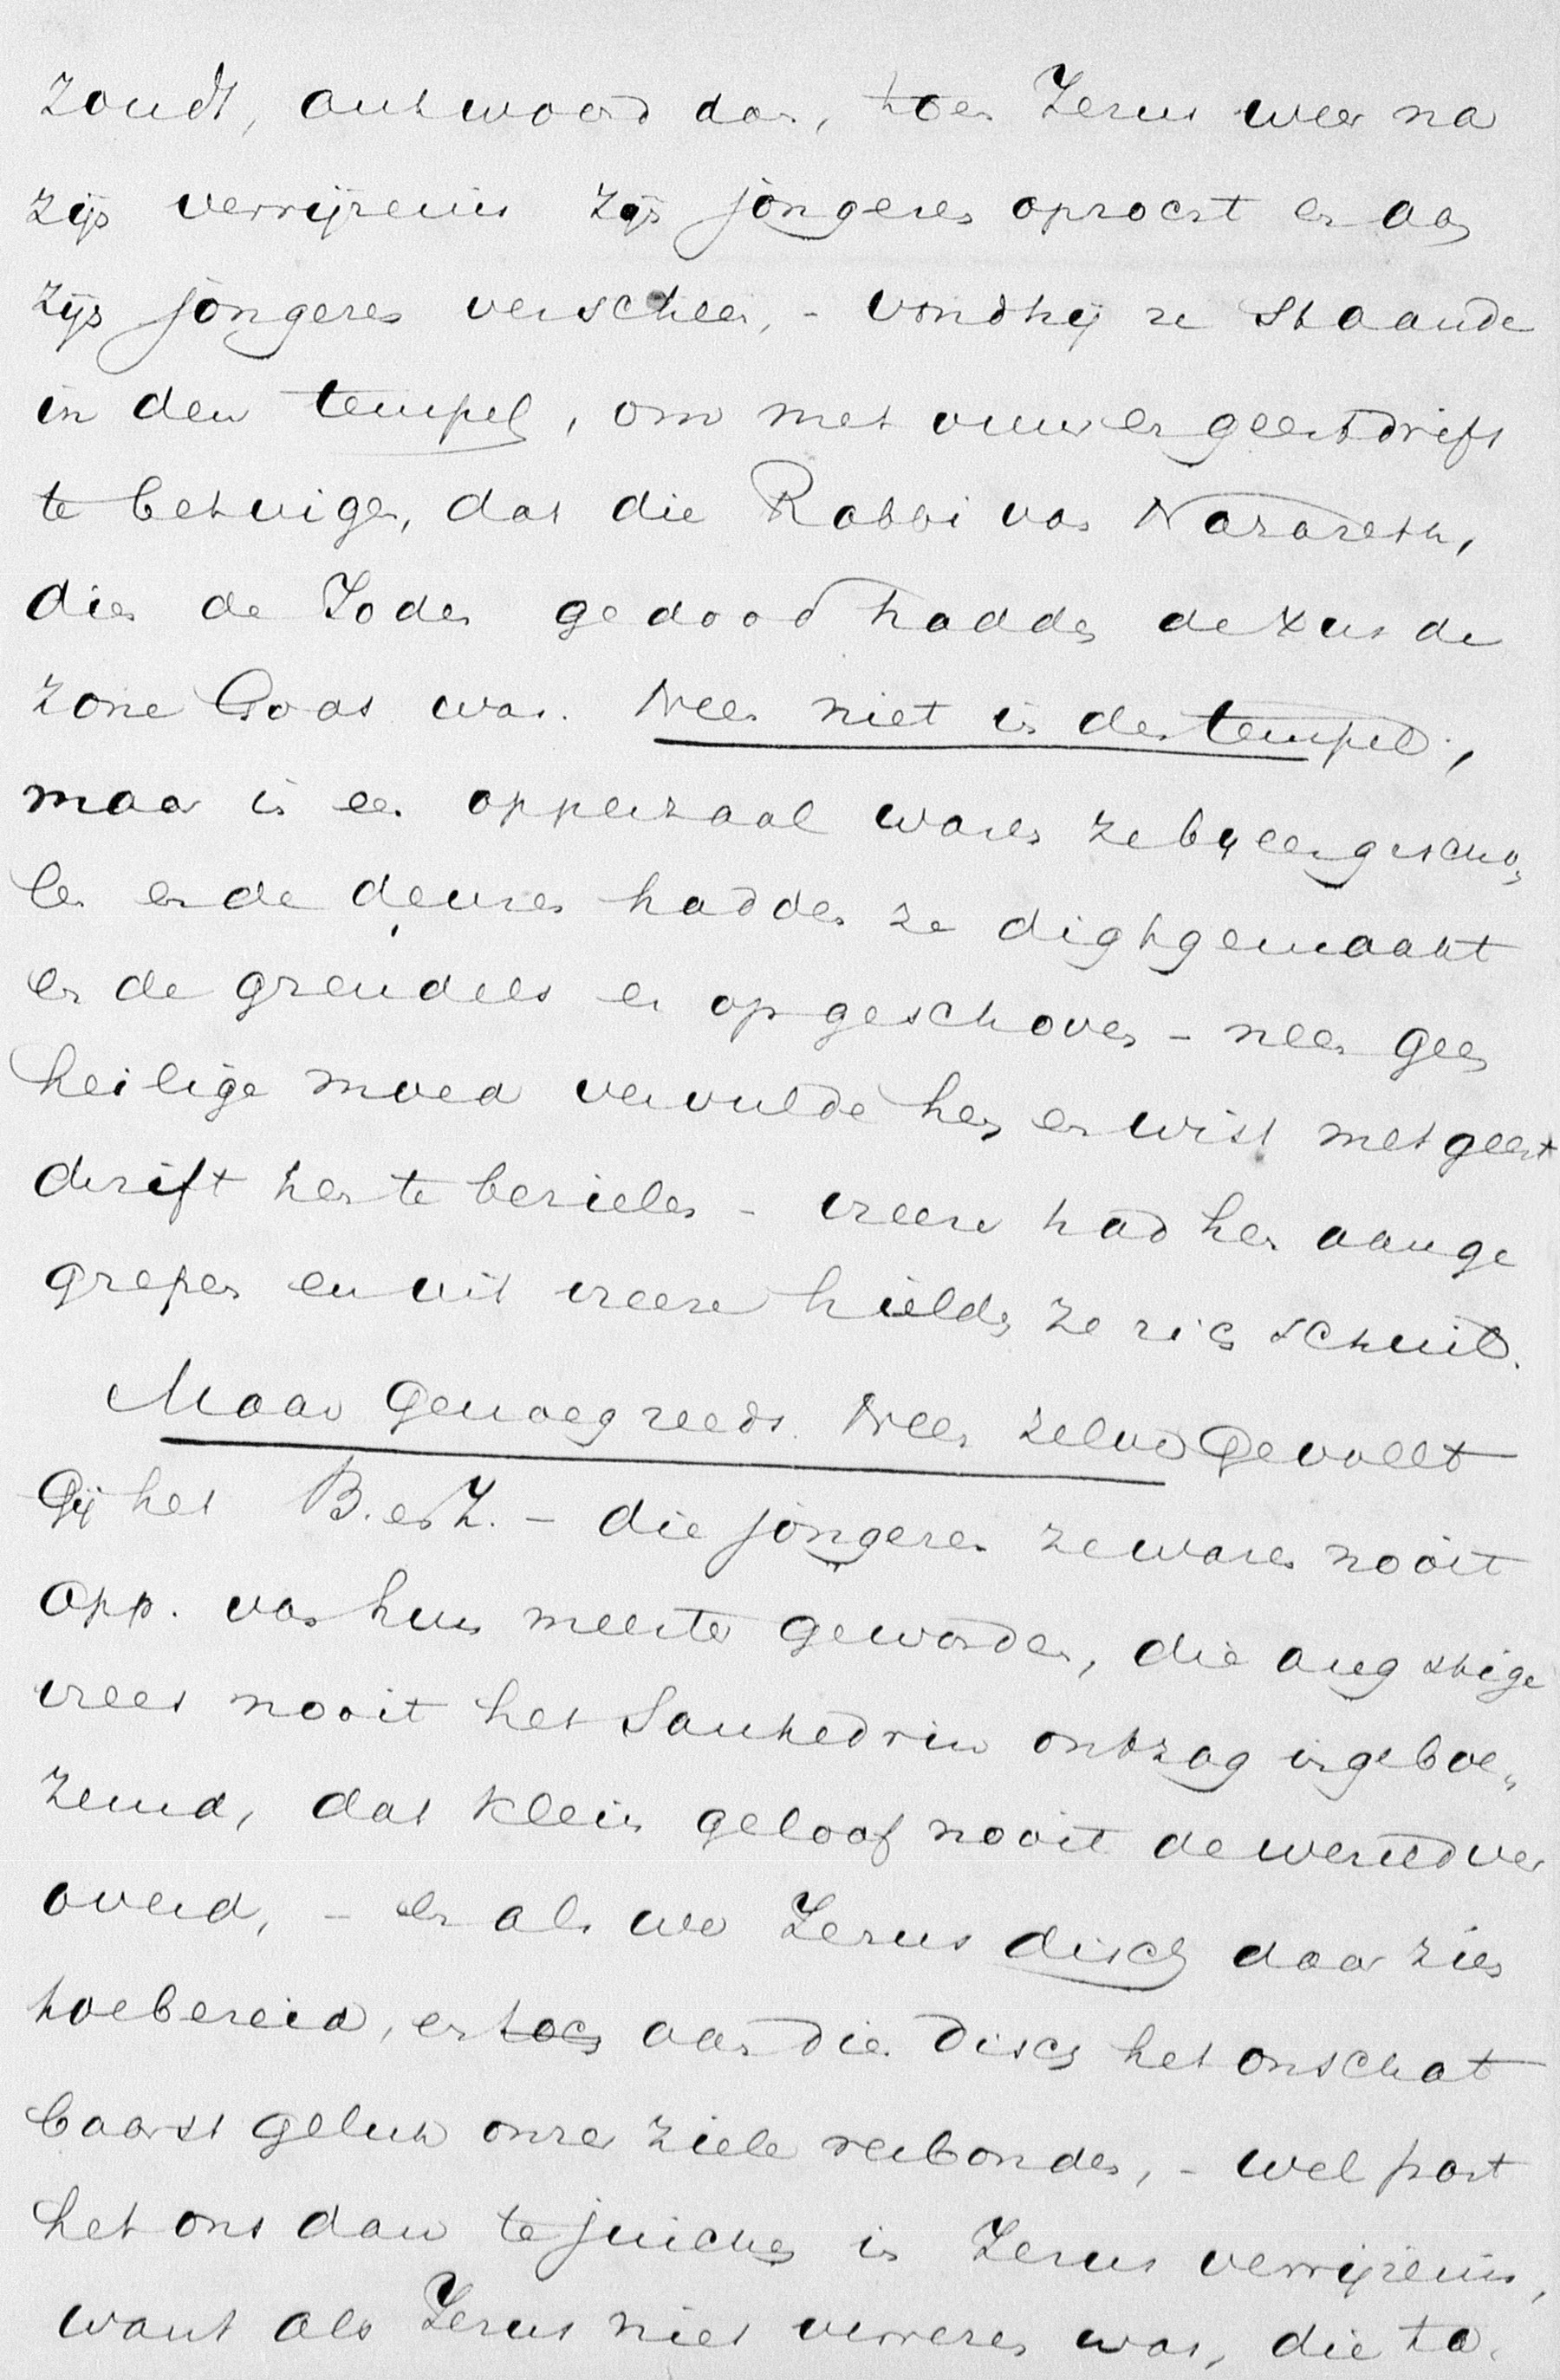 zoudt, antwoord dan, toen Jezus weer na
zijn verrijzenis zijn jongeren opzocht en aan
zijn jongeren verscheen, - vond hij ze staande
in den tempel, om met vuur en geestdrift
te betuigen, dat die Rabbi van Nazareth,
dien de Joden gedood hadden de Xus de
Zone Gods was. Neen niet in den tempel,
maar in een opperzaal waren ze bijeengescho-
len en de deuren hadden ze dightgemaakt
en de grendels er op geschoven - neen geen
heilige moed vervulde hen en wist met geest
drift hen te bezielen - vreeze had hen aange
grepen en uit vreeze hielden ze zich schuil.
Maar genoeg reeds. Neen zelve gevoelt
Gij het B. en Z. - die jongeren ze waren nooit
App. van hun meester geworden, die angstige
vrees nooit het Sanhedrin ontzag ingeboe-
zemd, dat klein geloof nooit de wereld ver
overd, - en als we Jezus disch daar zien
toebereid, en toch aan dien disch het onschat
baarst geluk onzer ziele verbonden, - wel past
het ons dan te juichen in Jezus verrijzenis,
want als Jezus niet verrezen was, die ta-